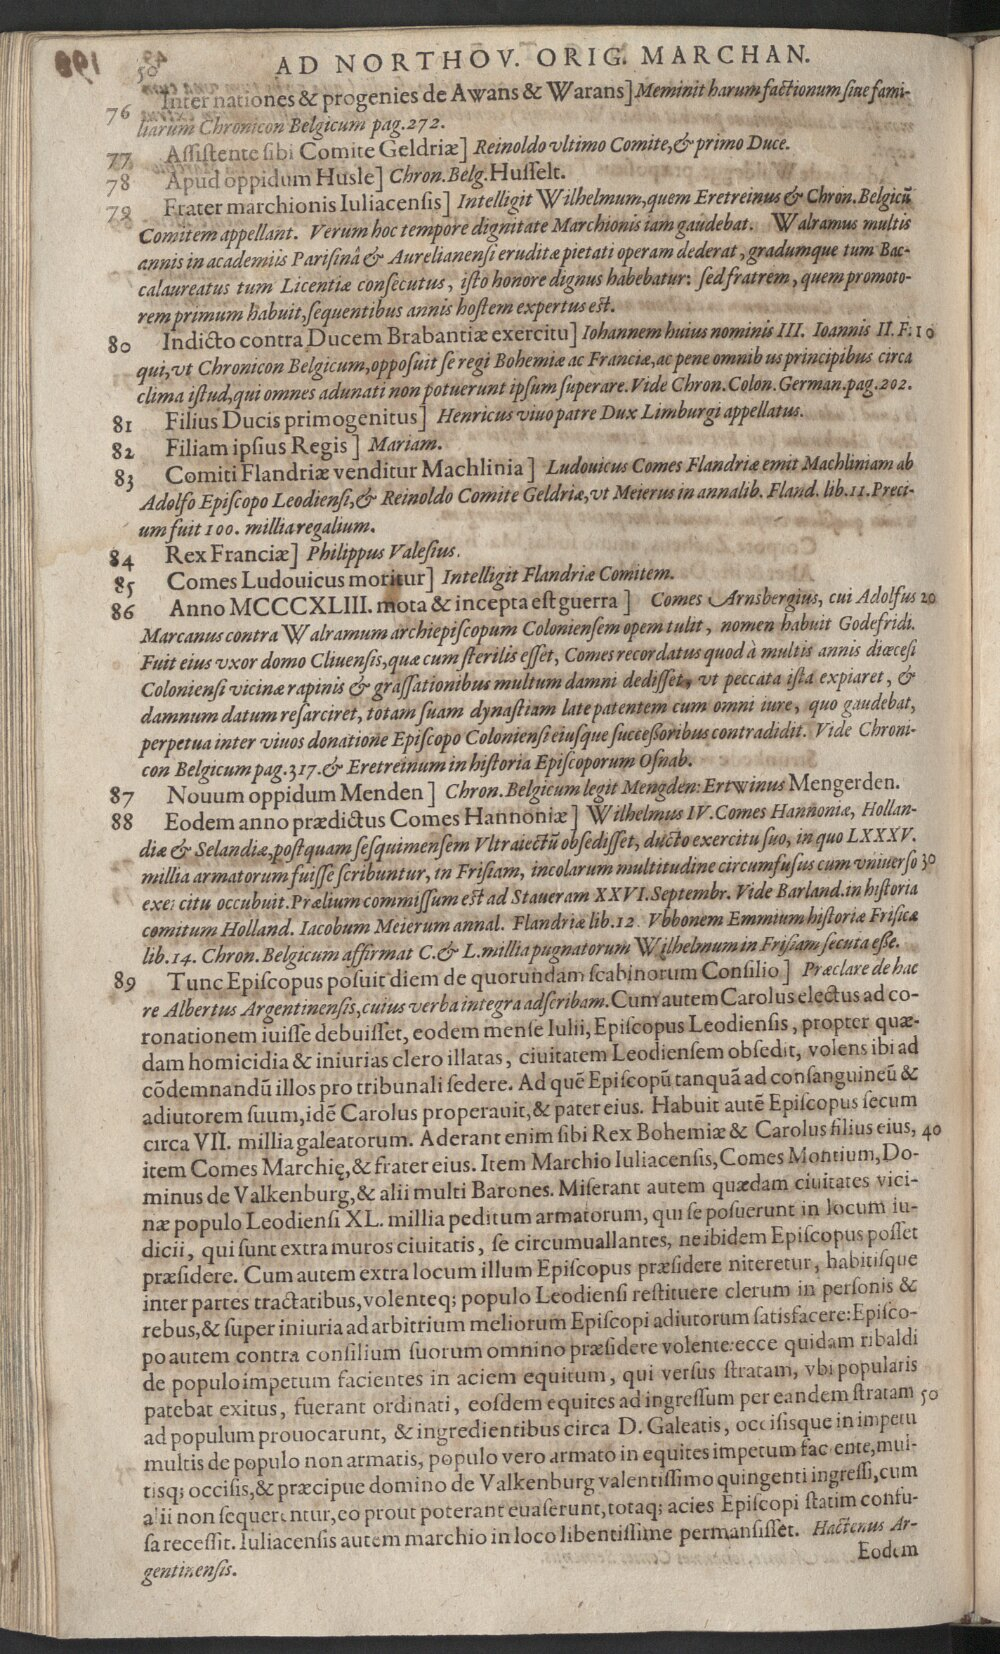 50 AD NORTHOV. ORIG. MARCHAN.
76 Inter nationes & progenies de Awans & Warans] Meminit harum factionum ſiue fami-
liarum Chronicon Belgicum pag.272.
77 Aſſiſtente ſibi Comite Geldriæ] Reinoldo vltimo Comite, & primo Duce.
78 Apud oppidum Husle] Chron.Belg. Huſſelt.
79 Frater marchionis Iuliacenſis] Intelligit Wilhelmum, quem Eretreinus & Chron. Belgicũ
Comitem appellant. Verum hoc tempore dignitate Marchionis iam gaudebat. Walramus multis
annis in academiis Pariſinâ & Aurelianenſi eruditæ pietati operam dederat, gradumque tum Bac-
calaureatus tum Licentiæ conſecutus, iſto honore dignus habebatur: ſed fratrem, quem promoto-
rem primum habuit, ſequentibus annis hoſtem expertus eſt.
80 Indicto contra Ducem Brabantiæ exercitu] Iohannem huius nominis III. Ioannis II. F. 10
qui, vt Chronicon Belgicum, oppoſuit ſe regi Bohemiæ ac Franciæ, ac pene omnibus principibus circa
clima iſtud, qui omnes adunati non potuerunt ipſum ſuperare. Vide Chron. Colon. German. pag.202.
81 Filius Ducis primogenitus] Henricus viuo patre Dux Limburgi appellatus.
82 Filiam ipſius Regis] Mariam.
83 Comiti Flandriæ venditur Machlinia] Ludouicus Comes Flandriæ emit Machliniam ab
Adolfo Epiſcopo Leodienſi, & Reinoldo Comite Geldriæ, vt Meierus in annalib. Fland. lib.11. Preci-
um fuit 100. millia regalium.
84 Rex Franciæ] Philippus Valeſius.
85 Comes Ludouicus moritur] Intelligit Flandriæ Comitem.
86 Anno MCCCXLIII. mota & incepta eſt guerra] Comes Arnsbergius, cui Adolfus 20
Marcanus contra Walramum archiepiſcopum Colonienſem opem tulit, nomen habuit Godefridi.
Fuit eius vxor domo Cliuenſis, quæ cum ſterilis eſſet, Comes recordatus quod à multis annis diœceſi
Colonienſi vicinæ rapinis & graſſationibus multum damni dediſſet, vt peccata iſta expiaret, &
damnum datum reſarciret, totam ſuam dynaſtiam late patentem cum omni iure, quo gaudebat,
perpetua inter viuos donatione Epiſcopo Colonienſi eiuſque ſucceſſoribus contradidit. Vide Chroni-
con Belgicum pag.317. & Eretreinum in hiſtoria Epiſcoporum Oſnab.
87 Nouum oppidum Menden] Chron. Belgicum legit Mengden: Ertwinus Mengerden.
88 Eodem anno prædictus Comes Hannoniæ] Wilhelmus IV. Comes Hannoniæ, Hollan-
diæ & Selandiæ, poſtquam ſeſquimenſem Vltraiectũ obſediſſet, ducto exercitu ſuo, in quo LXXXV.
millia armatorum fuiſſe ſcribuntur, in Friſiam, incolarum multitudine circumfuſus cum vniuerſo 30
exercitu occubuit. Prælium commiſſum eſt ad Staueram XXVI. Septembr. Vide Barland. in hiſtoria
comitum Holland. Iacobum Meierum annal. Flandriæ lib.12. Vbbonem Emmium hiſtoriæ Friſicæ
lib.14. Chron. Belgicum affirmat C. & L. millia pugnatorum Wilhelmum in Friſiam ſecuta eſſe.
89 Tunc Epiſcopus poſuit diem de quorundam ſcabinorum Conſilio] Præclare de hac
re Albertus Argentinenſis, cuius verba integra adſcribam. Cum autem Carolus electus ad co-
ronationem iuiſſe debuiſſet, eodem menſe Iulii, Epiſcopus Leodienſis, propter quæ-
dam homicidia & iniurias clero illatas, ciuitatem Leodienſem obſedit, volens ibi ad
cõdemnandũ illos pro tribunali ſedere. Ad quẽ Epiſcopũ tanquã ad conſanguineũ &
adiutorem ſuum, idẽ Carolus properauit, & pater eius. Habuit autẽ Epiſcopus ſecum
circa VII. millia galeatorum. Aderant enim ſibi Rex Bohemiæ & Carolus filius eius, 40
item Comes Marchię, & frater eius. Item Marchio Iuliacenſis, Comes Montium, Do-
minus de Valkenburg, & alii multi Barones. Miſerant autem quædam ciuitates vici-
næ populo Leodienſi XL. millia peditum armatorum, qui ſe poſuerunt in locum iu-
dicii, qui ſunt extra muros ciuitatis, ſe circumuallantes, ne ibidem Epiſcopus poſſet
præſidere. Cum autem extra locum illum Epiſcopus præſidere niteretur, habitiſque
inter partes tractatibus, volenteq; populo Leodienſi reſtituere clerum in perſonis &
rebus, & ſuper iniuria ad arbitrium meliorum Epiſcopi adiutorum ſatisfacere: Epiſco-
po autem contra conſilium ſuorum omnino præſidere volente: ecce quidam ribaldi
de populo impetum facientes in aciem equitum, qui verſus ſtratam, vbi popularis
patebat exitus, fuerant ordinati, eoſdem equites ad ingreſſum per eandem ſtratam 50
ad populum prouocarunt, & ingredientibus circa D. Galeatis, occiſisque in impetu
multis de populo non armatis, populo vero armato in equites impetum faciente, mul-
tisq; occiſis, & præcipue domino de Valkenburg valentiſſimo quingenti ingreſſi, cum
alii non ſequerentur, eo prout poterant euaſerunt, totaq; acies Epiſcopi ſtatim confu-
ſa receſſit. Iuliacenſis autem marchio in loco libentiſſime permanſiſſet. Hactenus Ar-
gentinenſis.
Eodem